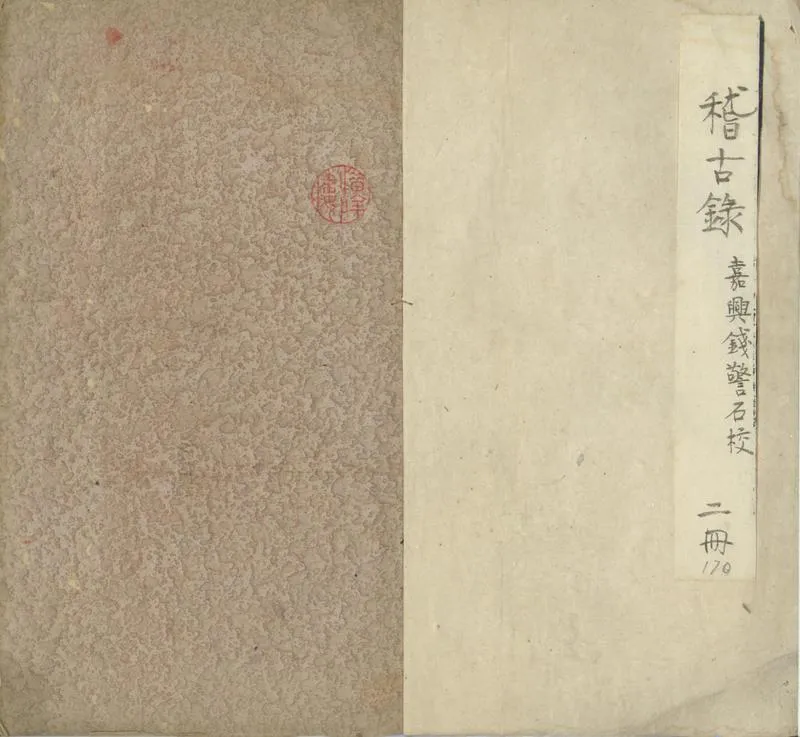 稽古錄
嘉興錢警石校
二冊
170